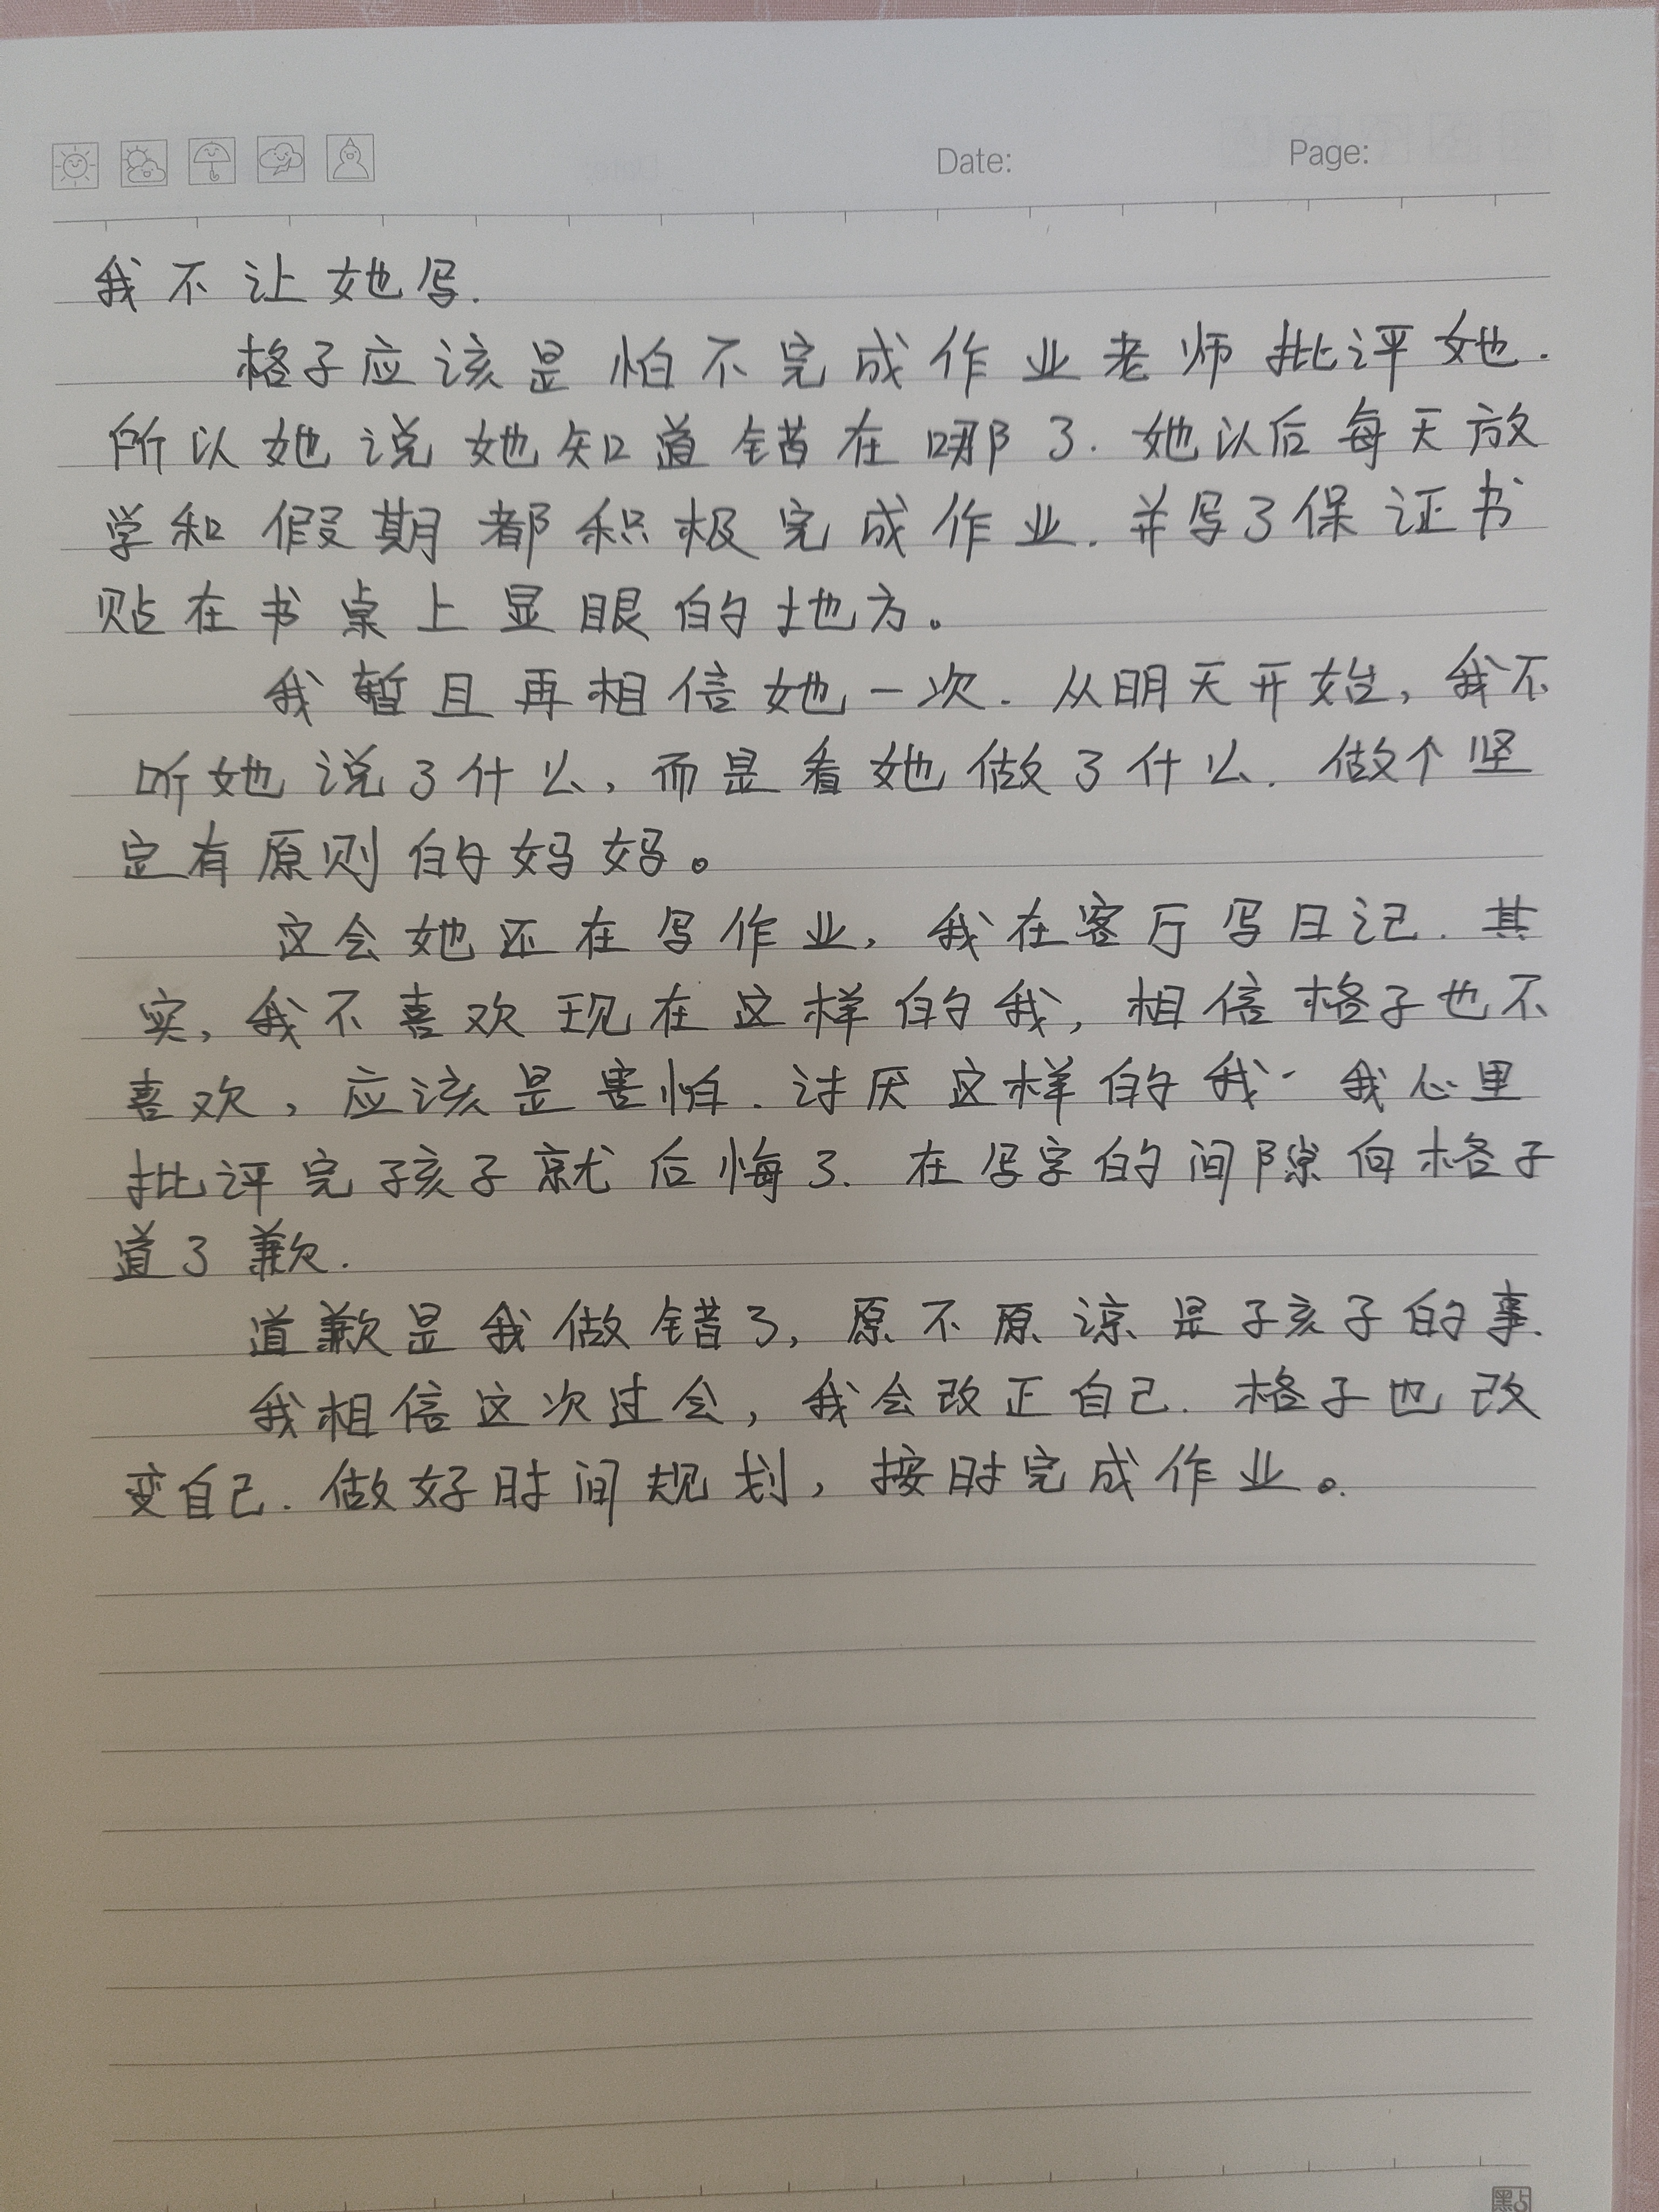 Date:
Page:
我不让她写.
格子应该是怕不完成作业老师批评她.
所以她说她知道错在哪了.她以后每天放
学和假期都积极完成作业.并写了保证书
贴在书桌上显眼的地方。
我暂且再相信她一次.从明天开始,我不
听她说了什么,而是看她做了什么.做个坚
定有原则的妈妈。
这会她还在写作业,我在客厅写日记.其
实,我不喜欢现在这样的我,相信格子也不
喜欢,应该是害怕.讨厌这样的我.我心里
批评完孩子就后悔了.在写字的间隙向格子
道了歉.
道歉是我做错了,原不原谅是孩子的事.
我相信这次过会,我会改正自己.格子也改
变自己.做好时间规划,按时完成作业。
點